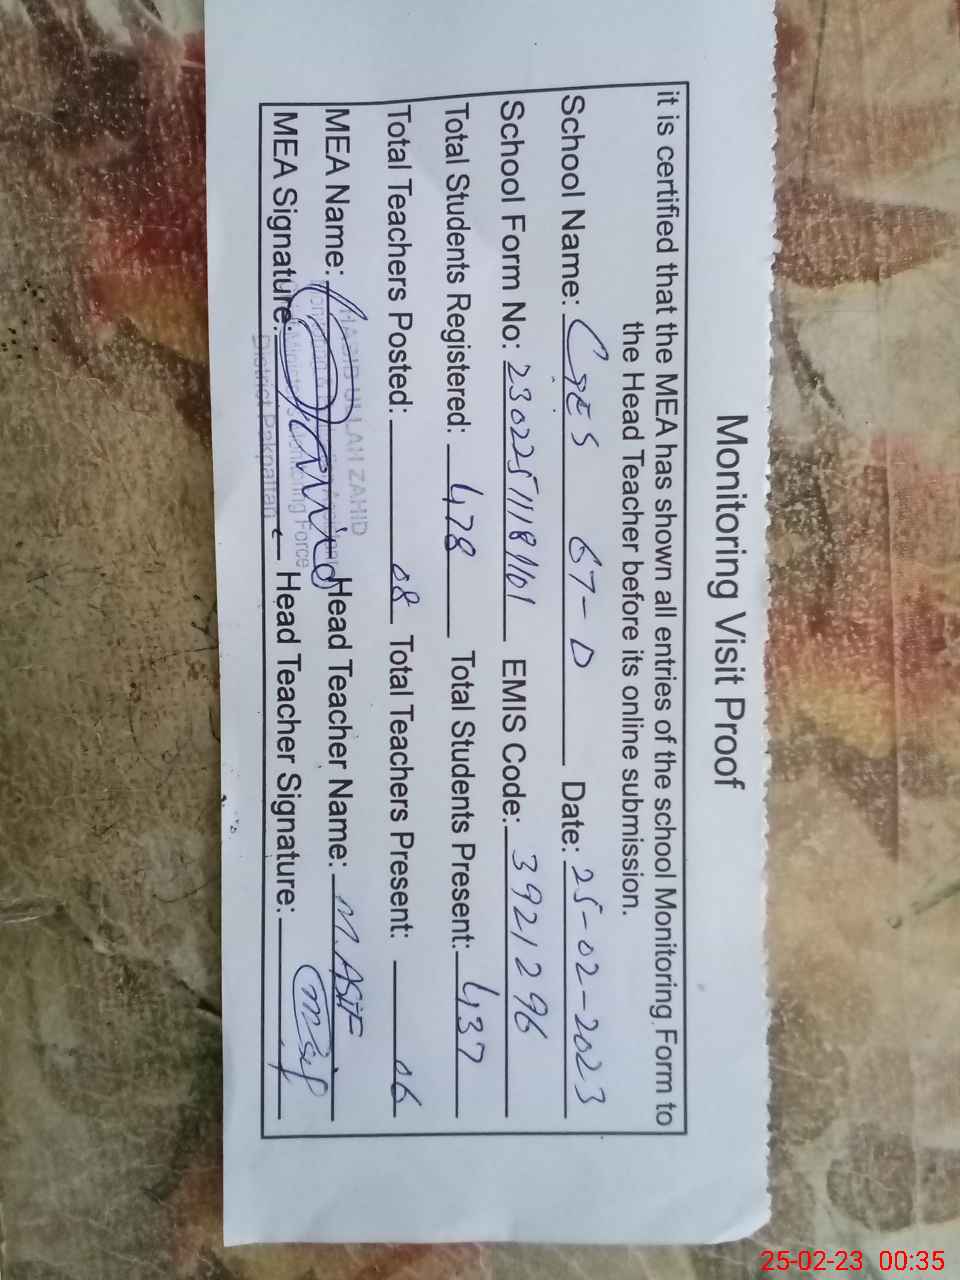 Monitoring Visit Proof
it is certified that the MEA has shown all entries of the school Monitoring Form to
the Head Teacher before its online submission.
School Name: GES 67-D Date: 25-02-2023
School Form No: EMIS Code: 3921296
Total Students Registered: 478 Total Students Present: 437
Total Teachers Posted: 08 Total Teachers Present: 06
MEA Name: HABIB ULLAH ZAHID Head Teacher Name: M. ASIF
MEA Signature: Head Teacher Signature:
Monitoring Force
District Pakpattan
25-02-23 00:35